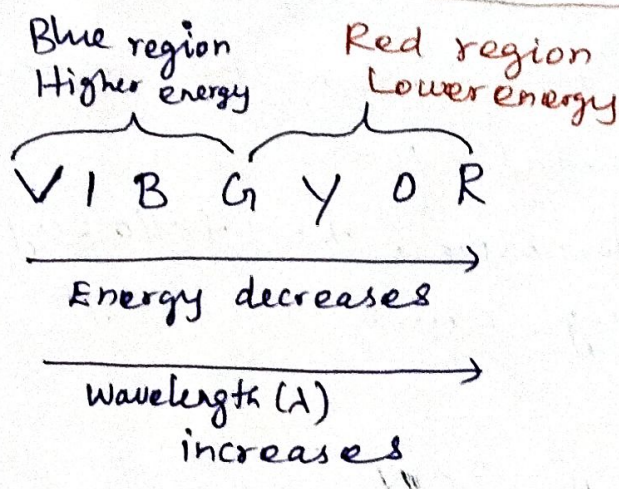 Blue region
Higher energy
Red region
Lower energy
V I B G Y O R
Energy decreases
Wavelength (λ)
increases